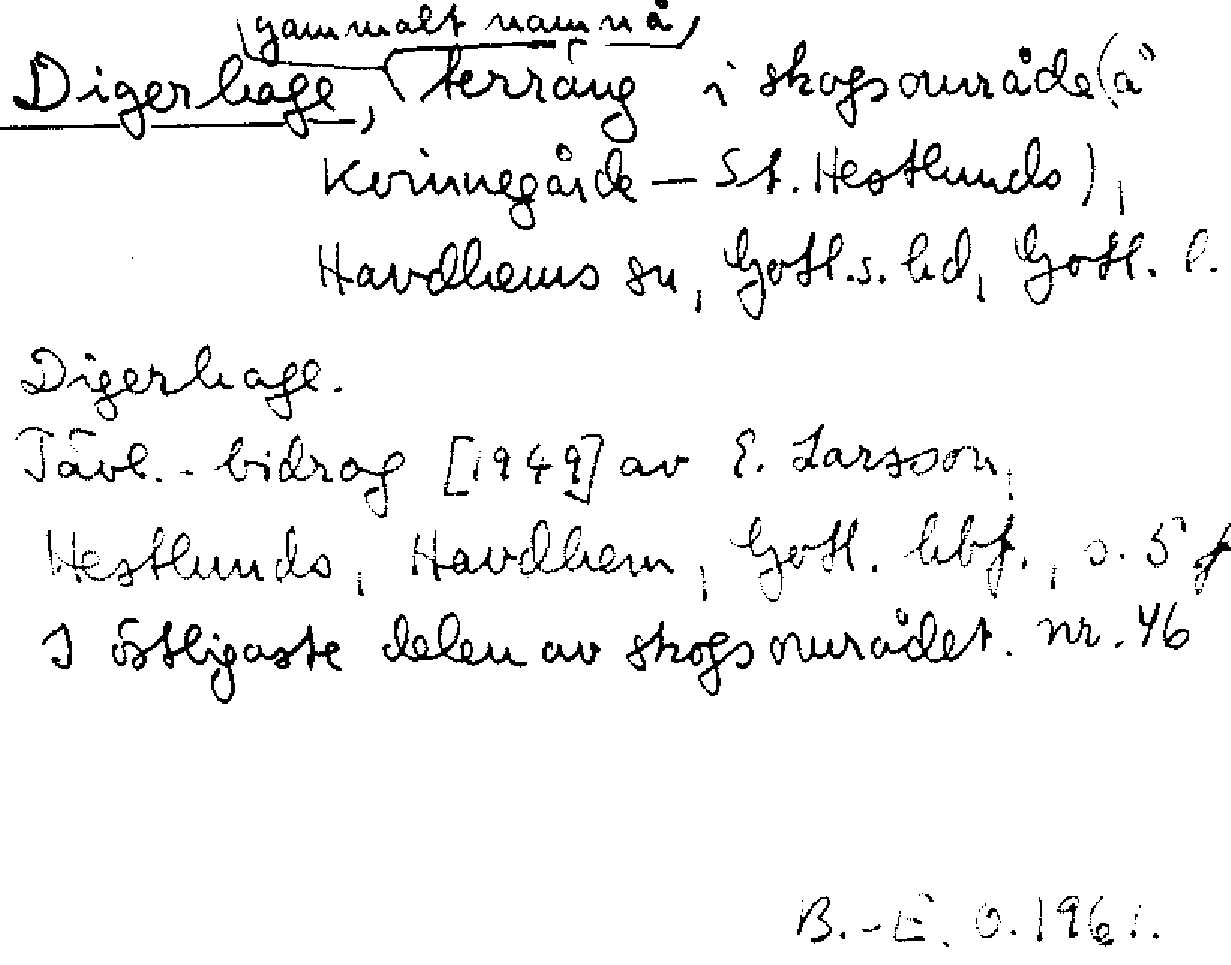 (gammalt namn å)
Digerhage, (terräng i skogsområde (å
Kvinnegårde – St. Hestlunds),
Havdhems sn, Gotl. s. hd, Gotl. l.
Digerhage.
Tävl.-bidrag [1949] av E. Larsson,
Hestlunds, Havdhem, Gotl. hbf., s. 5 f
I östligaste delen av skogsområdet. nr. 46
B.-E. O. 1961.